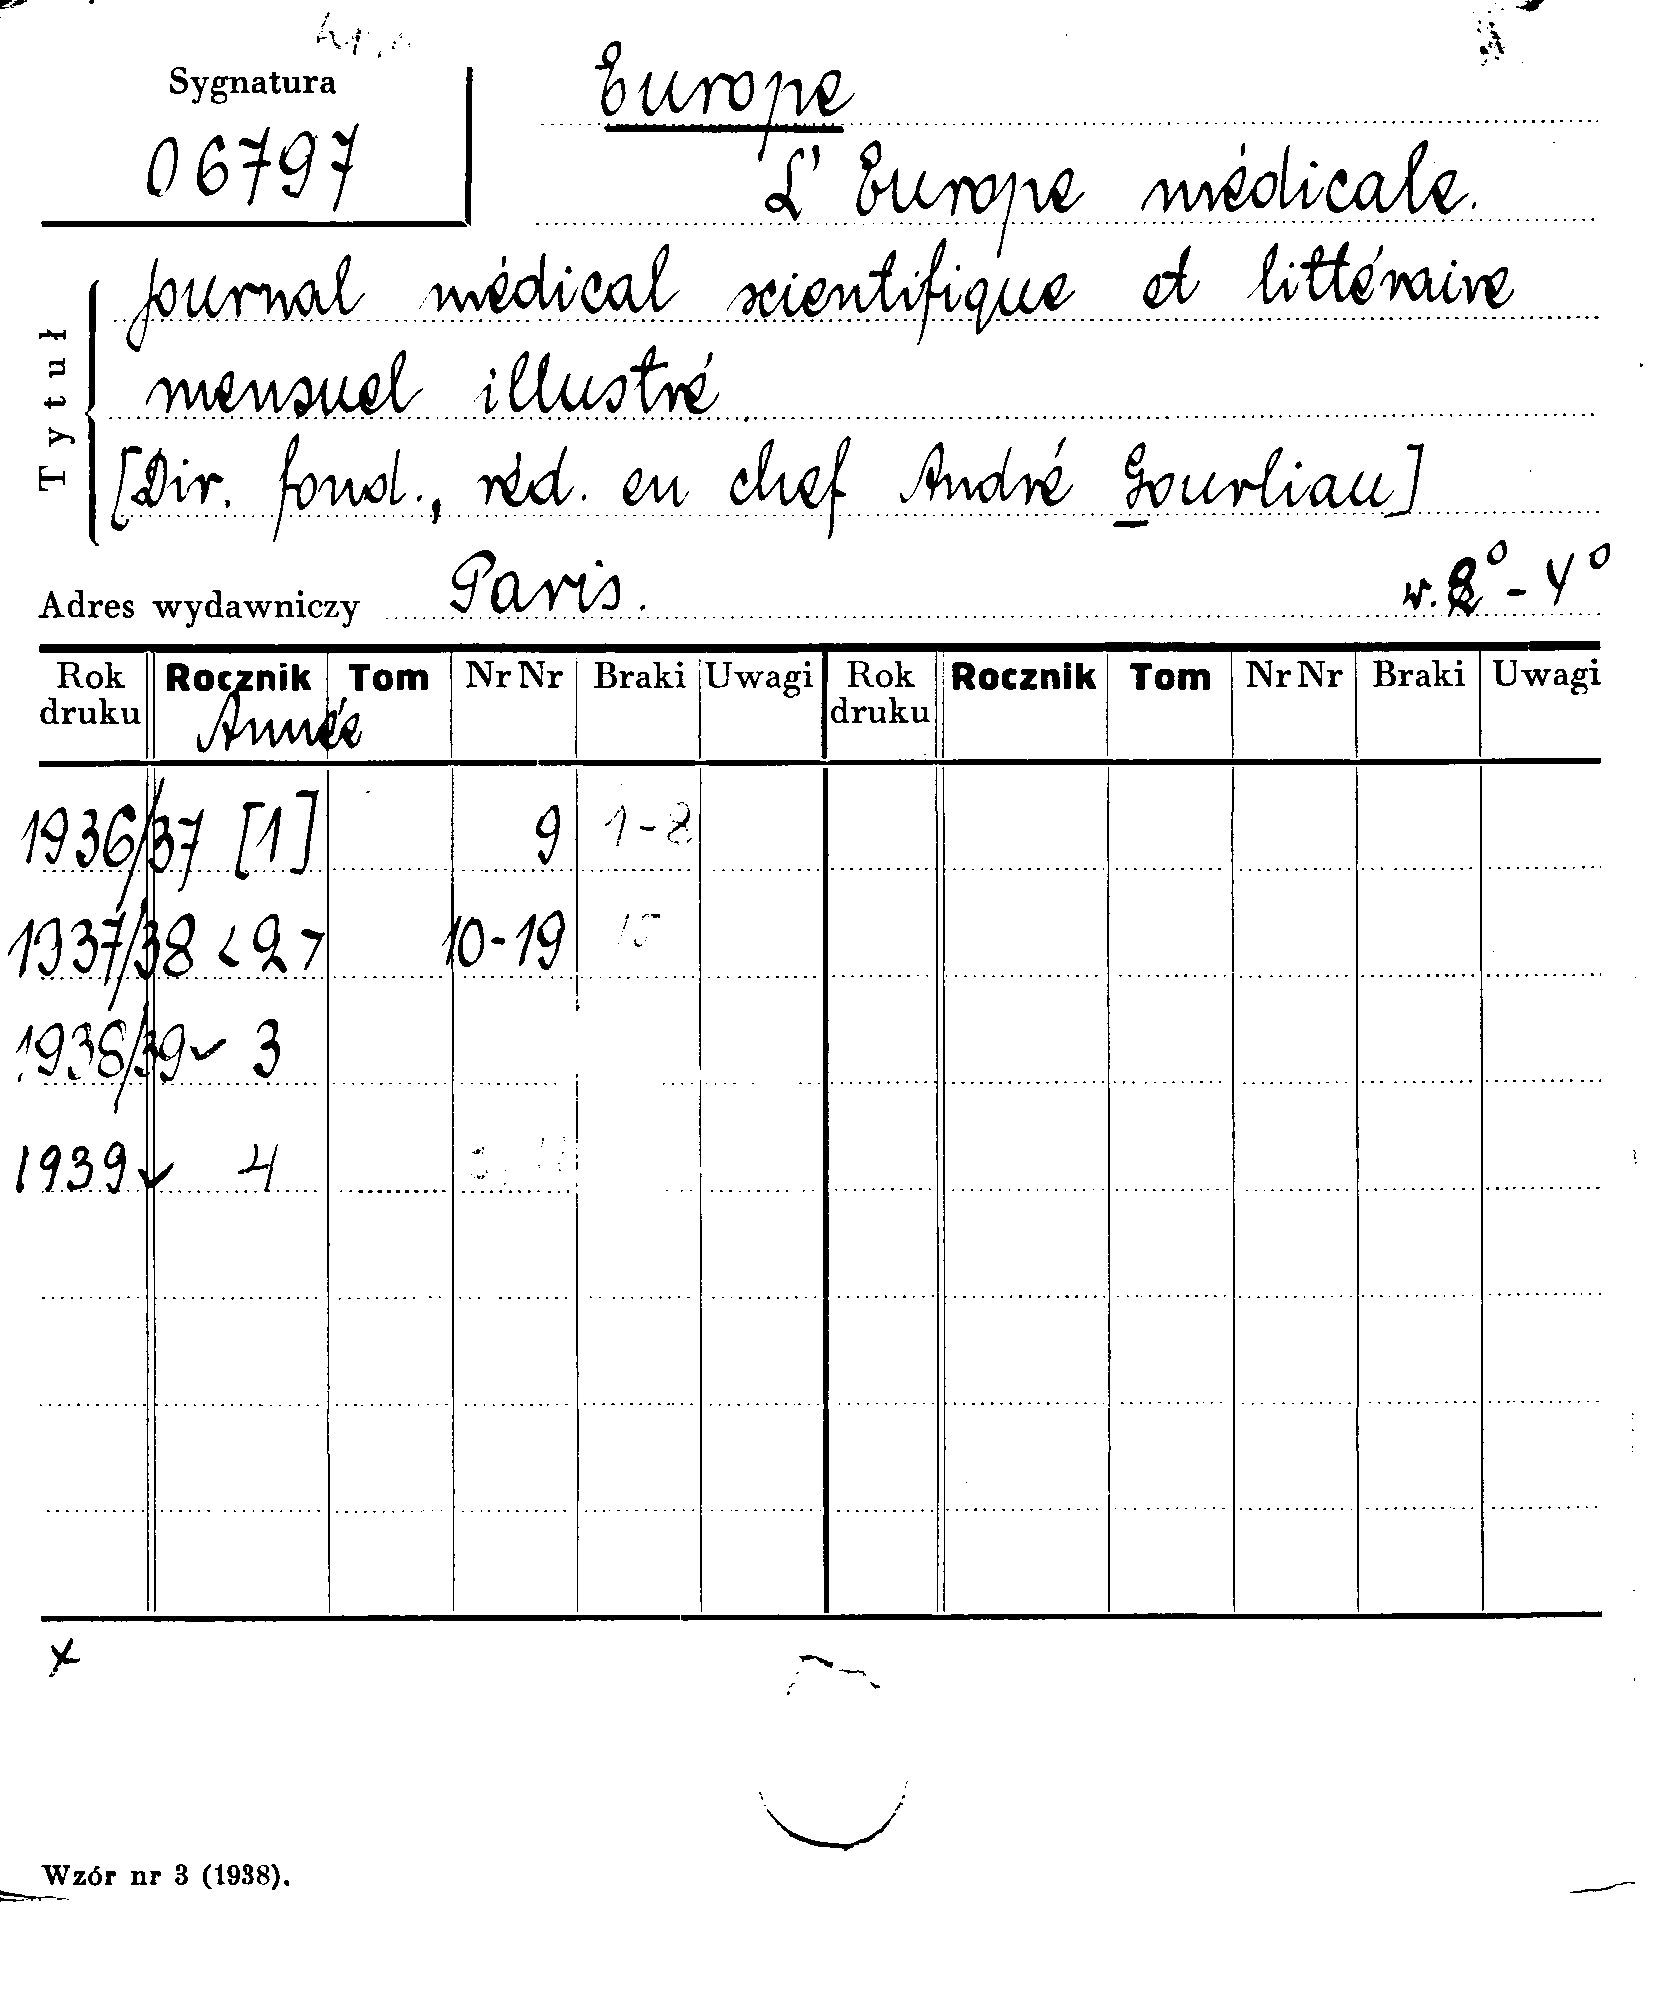 Sygnatura
06797
Europe
L'Europe médicale.
Journal médical scientifique et littéraire
mensuel illustré
[Dir. fond., réd. en chef André Gourliau]
Tytuł
Adres wydawniczy Paris. w. 8° - 4°
Rok druku Rocznik Tom Nr Nr Braki Uwagi Rok druku Rocznik Tom Nr Nr Braki Uwagi
Année
1936/37 [1] 9 1-8
1937/38 <2> 10-19 15
1938/39 ✓ 3
1939 ✓ 4
x
Wzór nr 3 (1938).